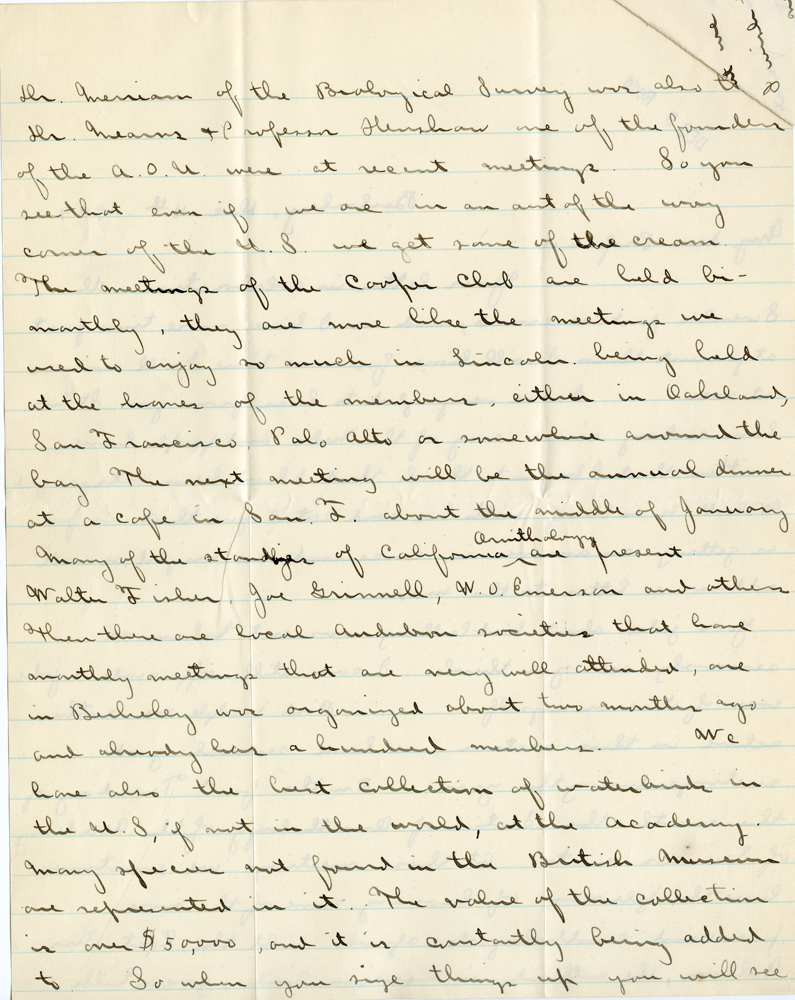 Dr. Merriam of the Biological Survey was also
Dr. Mearns & Professor Henshaw one of the founders
of the A.O.U. were at recent meetings. So you
see that even if we are in an out of the way
corner of the U.S. we get some of the cream.
The meetings of the Cooper Club are held bi-
monthly, they are more like the meetings we
used to enjoy so much in Lincoln. being held
at the homes of the members, either in Oakland,
San Francisco, Palo Alto or somewhere around the
bay The next meeting will be the annual dinner
at a cafe in San. F. about the middle of January
Many of the standbyes of California Ornithology are present
Walter Fisher, Joe Grinnell, W.O. Emerson and others
Then there are local Audubon societies that have
monthly meetings that are very well attended, one
in Berkeley was organized about two months ago
and already has a hundred members. We
have also the best collection of waterbirds in
the U.S, if not in the world, at the Academy.
Many species not found in the British Museum
are represented in it. The value of the collection
is over $50,000, and it is constantly being added
to So when you size things up you will see